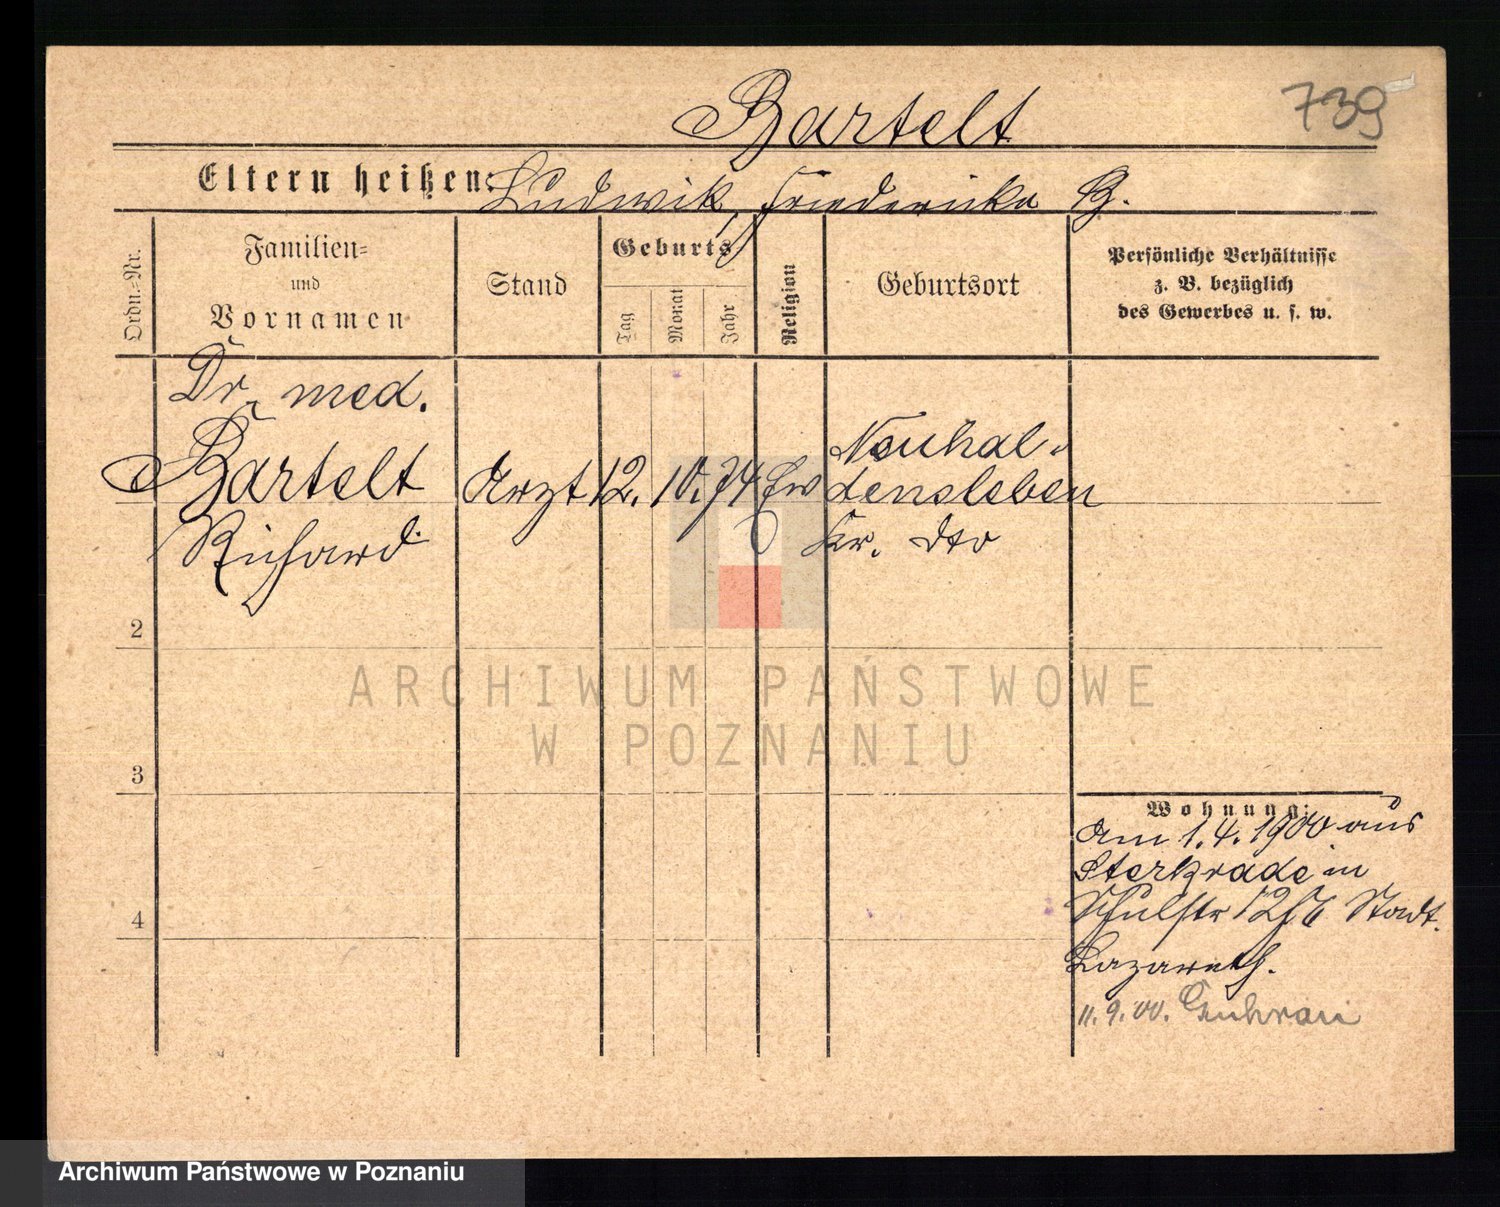 739
Bartelt
Eltern heißen: Ludwik, Friedericke B.
Ordn.-Nr.
Familien-
und
Vornamen
Stand
Geburts
Tag
Monat
Jahr
Religion
Geburtsort
Persönliche Verhältnisse
z. B. bezüglich
des Gewerbes u. s. w.
Dr. med.
Bartelt
Richard
Arzt
12.
10.
74
Ev
Neuhal-
densleben
Kr. dto
2
3
4
Wohnung:
Am 1.4.1900 aus
Sterkrade in
Schulstr 12 Stadt.
Lazareth.
11.9.00. Guhrau
ARCHIWUM PAŃSTWOWE
W POZNANIU
Archiwum Państwowe w Poznaniu